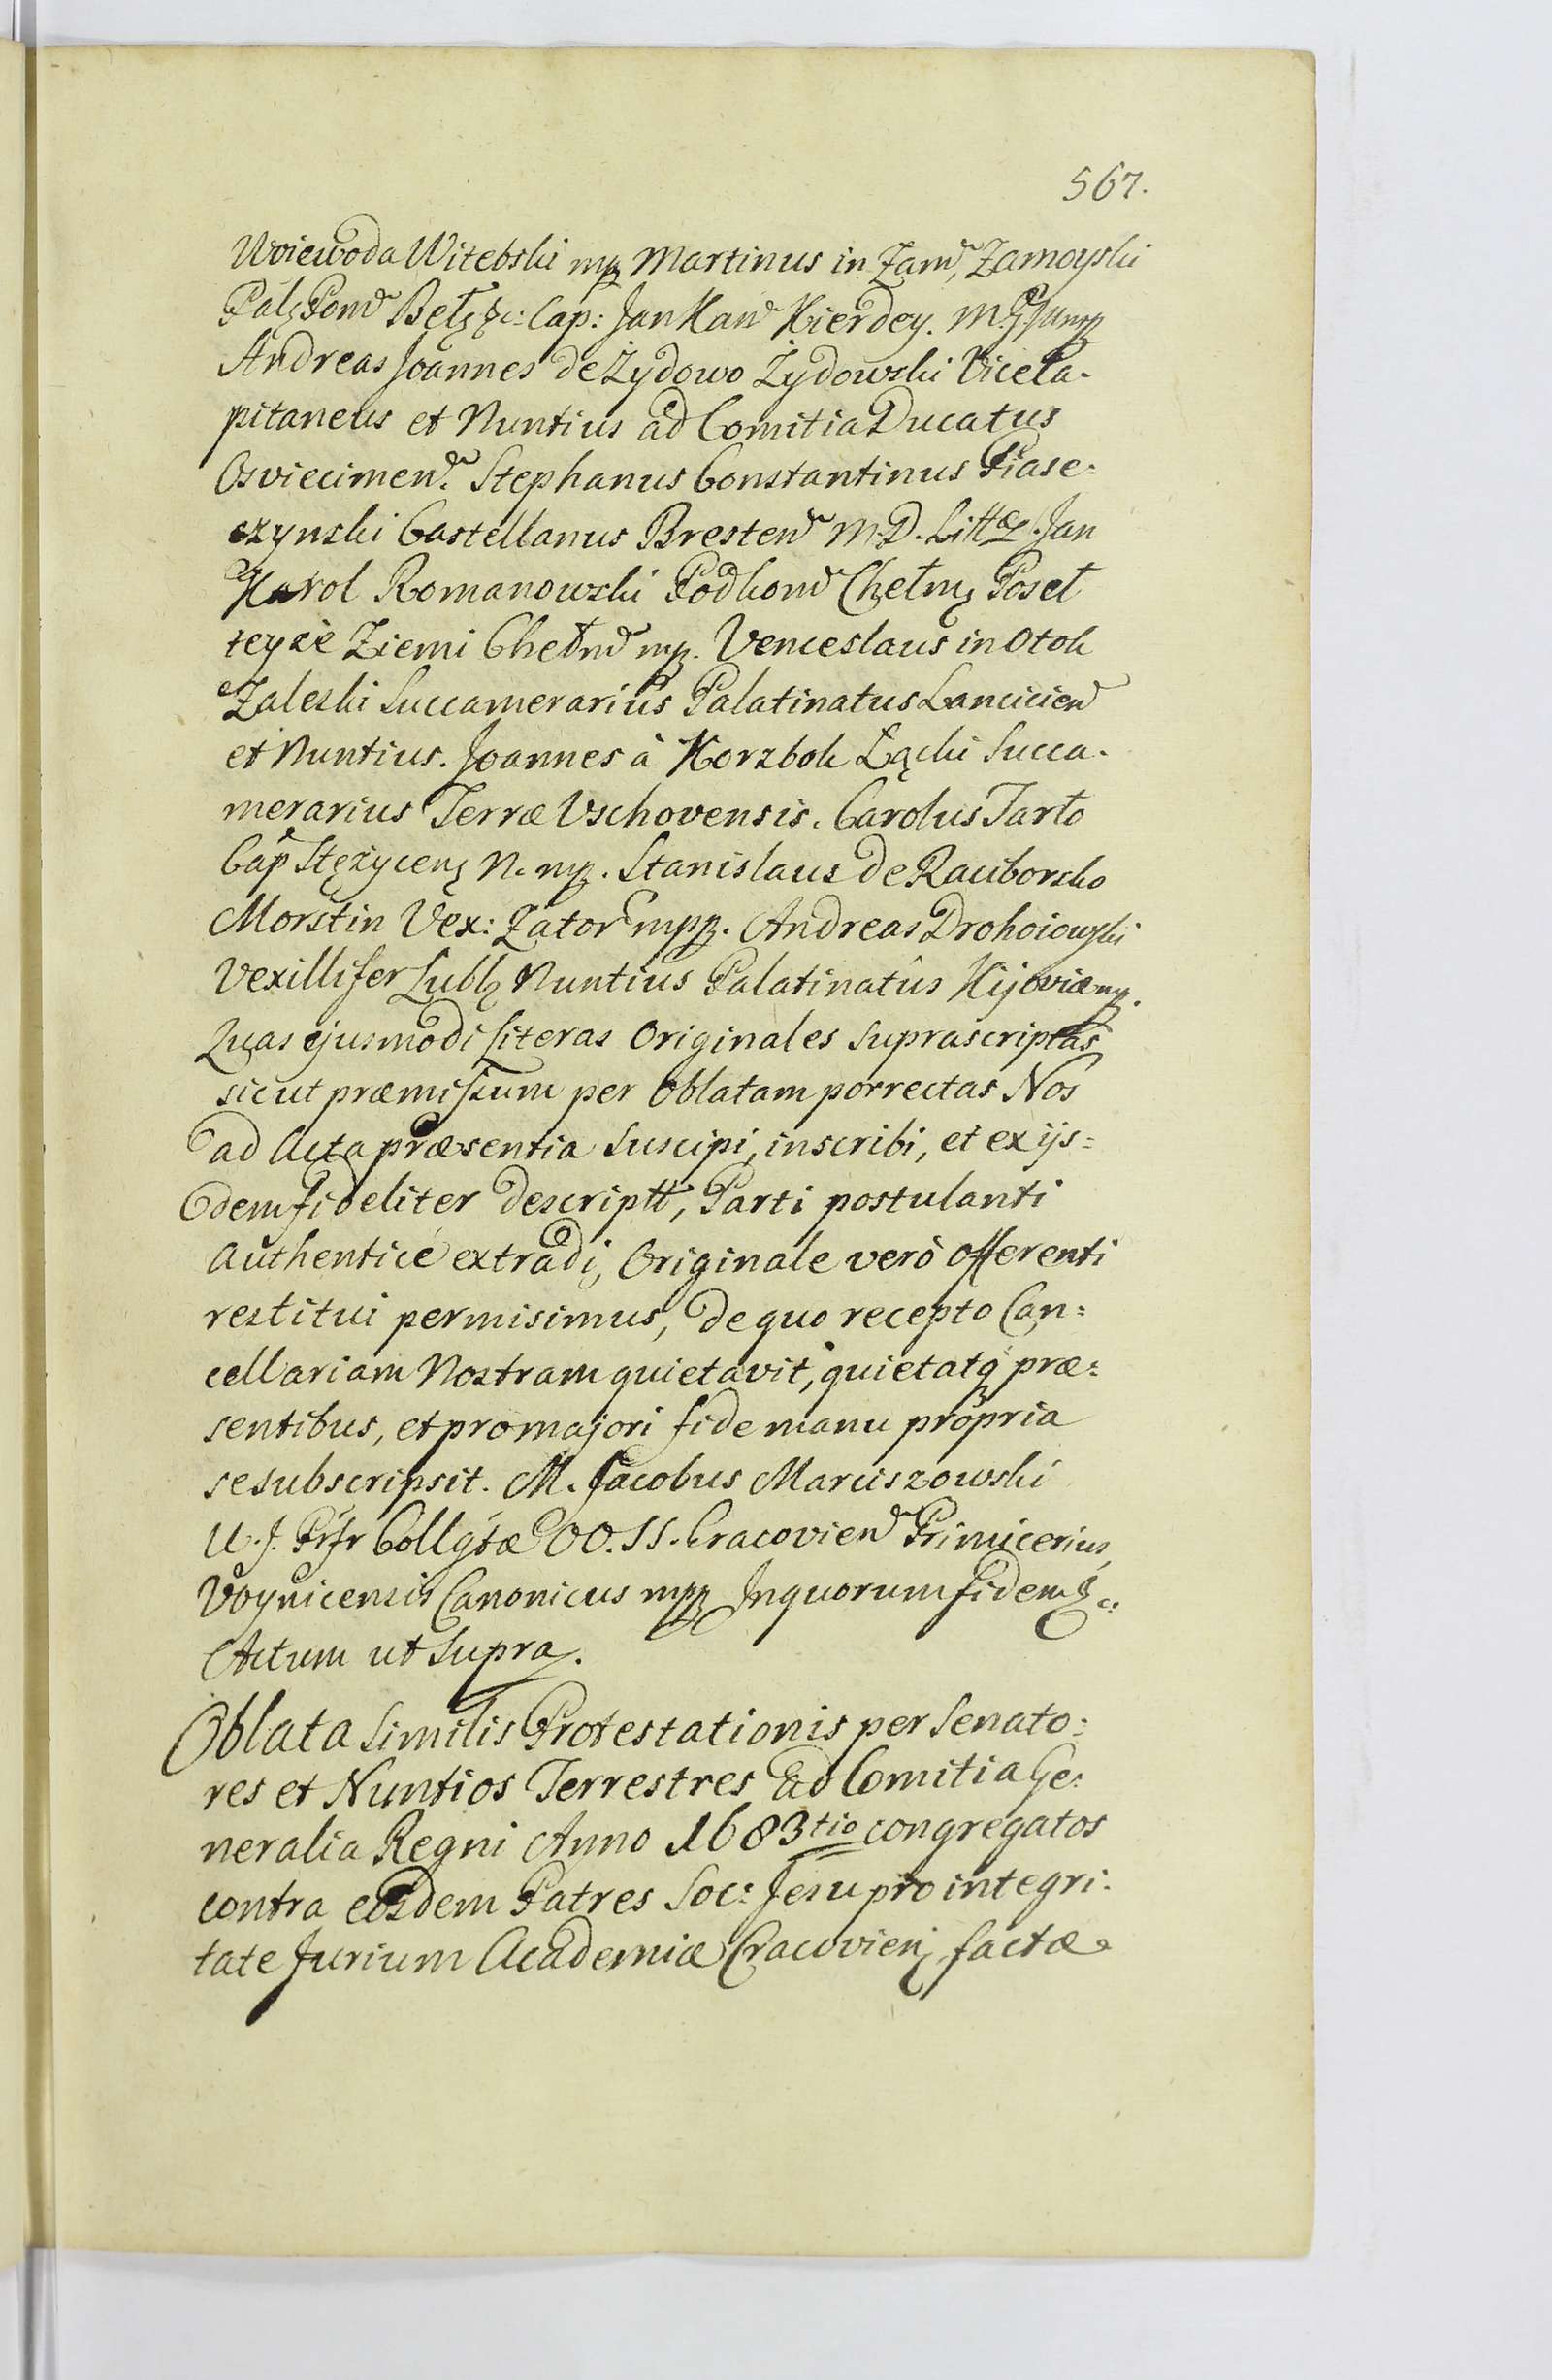 567.
Woiewoda Witebski mp Martinus in Zam, Zamoyski
Pal Pom Bełz &c: Cap: Jan Kierdey.
Andreas Joannes de Zydowo Żydowski Viceca-
pitaneus et Nuntius ad Comitia Ducatus
Osviecimen. Stephanus Constantinus Piase=
czynski Castellanus Bresten M.D. Litt. Jan
Karol Romanowski Podkom Chełm Poseł
teyże Ziemi Chełm mp. Venceslaus in Otok
Zaleski Succamerarius Palatinatus Lancicien
et Nuntius. Joannes à Korzbok Łącki Succa-
merarius Terræ Vschovensis. Carolus Tarło
Cap Stężycen N. mp. Stanislaus de Raciborsko
Morstin Vex: Zator mpp. Andreas Drohoiowski
Vexillifer Lubl Nuntius Palatinatûs Kijoviæ mp.
Quas ejusmodi Literas Originales suprascriptas
sicut præmissum per Oblatam porrectas Nos
ad Acta præsentia suscipi, inscribi, et ex ijs=
dem fideliter descriptt, Parti postulanti
authenticè extradi, Originale verò offerenti
restitui permisimus, de quo recepto Can=
cellariam Nostram quietavit, quietatq præ=
sentibus, et pro majori fide manu propria
se subscripsit. M. Jacobus Marciszowski
U.J. Prfr Collgtæ OO.SS. Cracovien Primicerius,
Voynicensis Canonicus mpp In quorum fidem &c:
Actum ut supra.
Oblata similis Protestationis per Senato=
res et Nuntios Terrestres ad Comitia Ge=
neralia Regni Anno 1683tio congregatos
contra eosdem Patres Soc: Jesu pro integri=
tate Jurium Academiæ Cracovien factæ